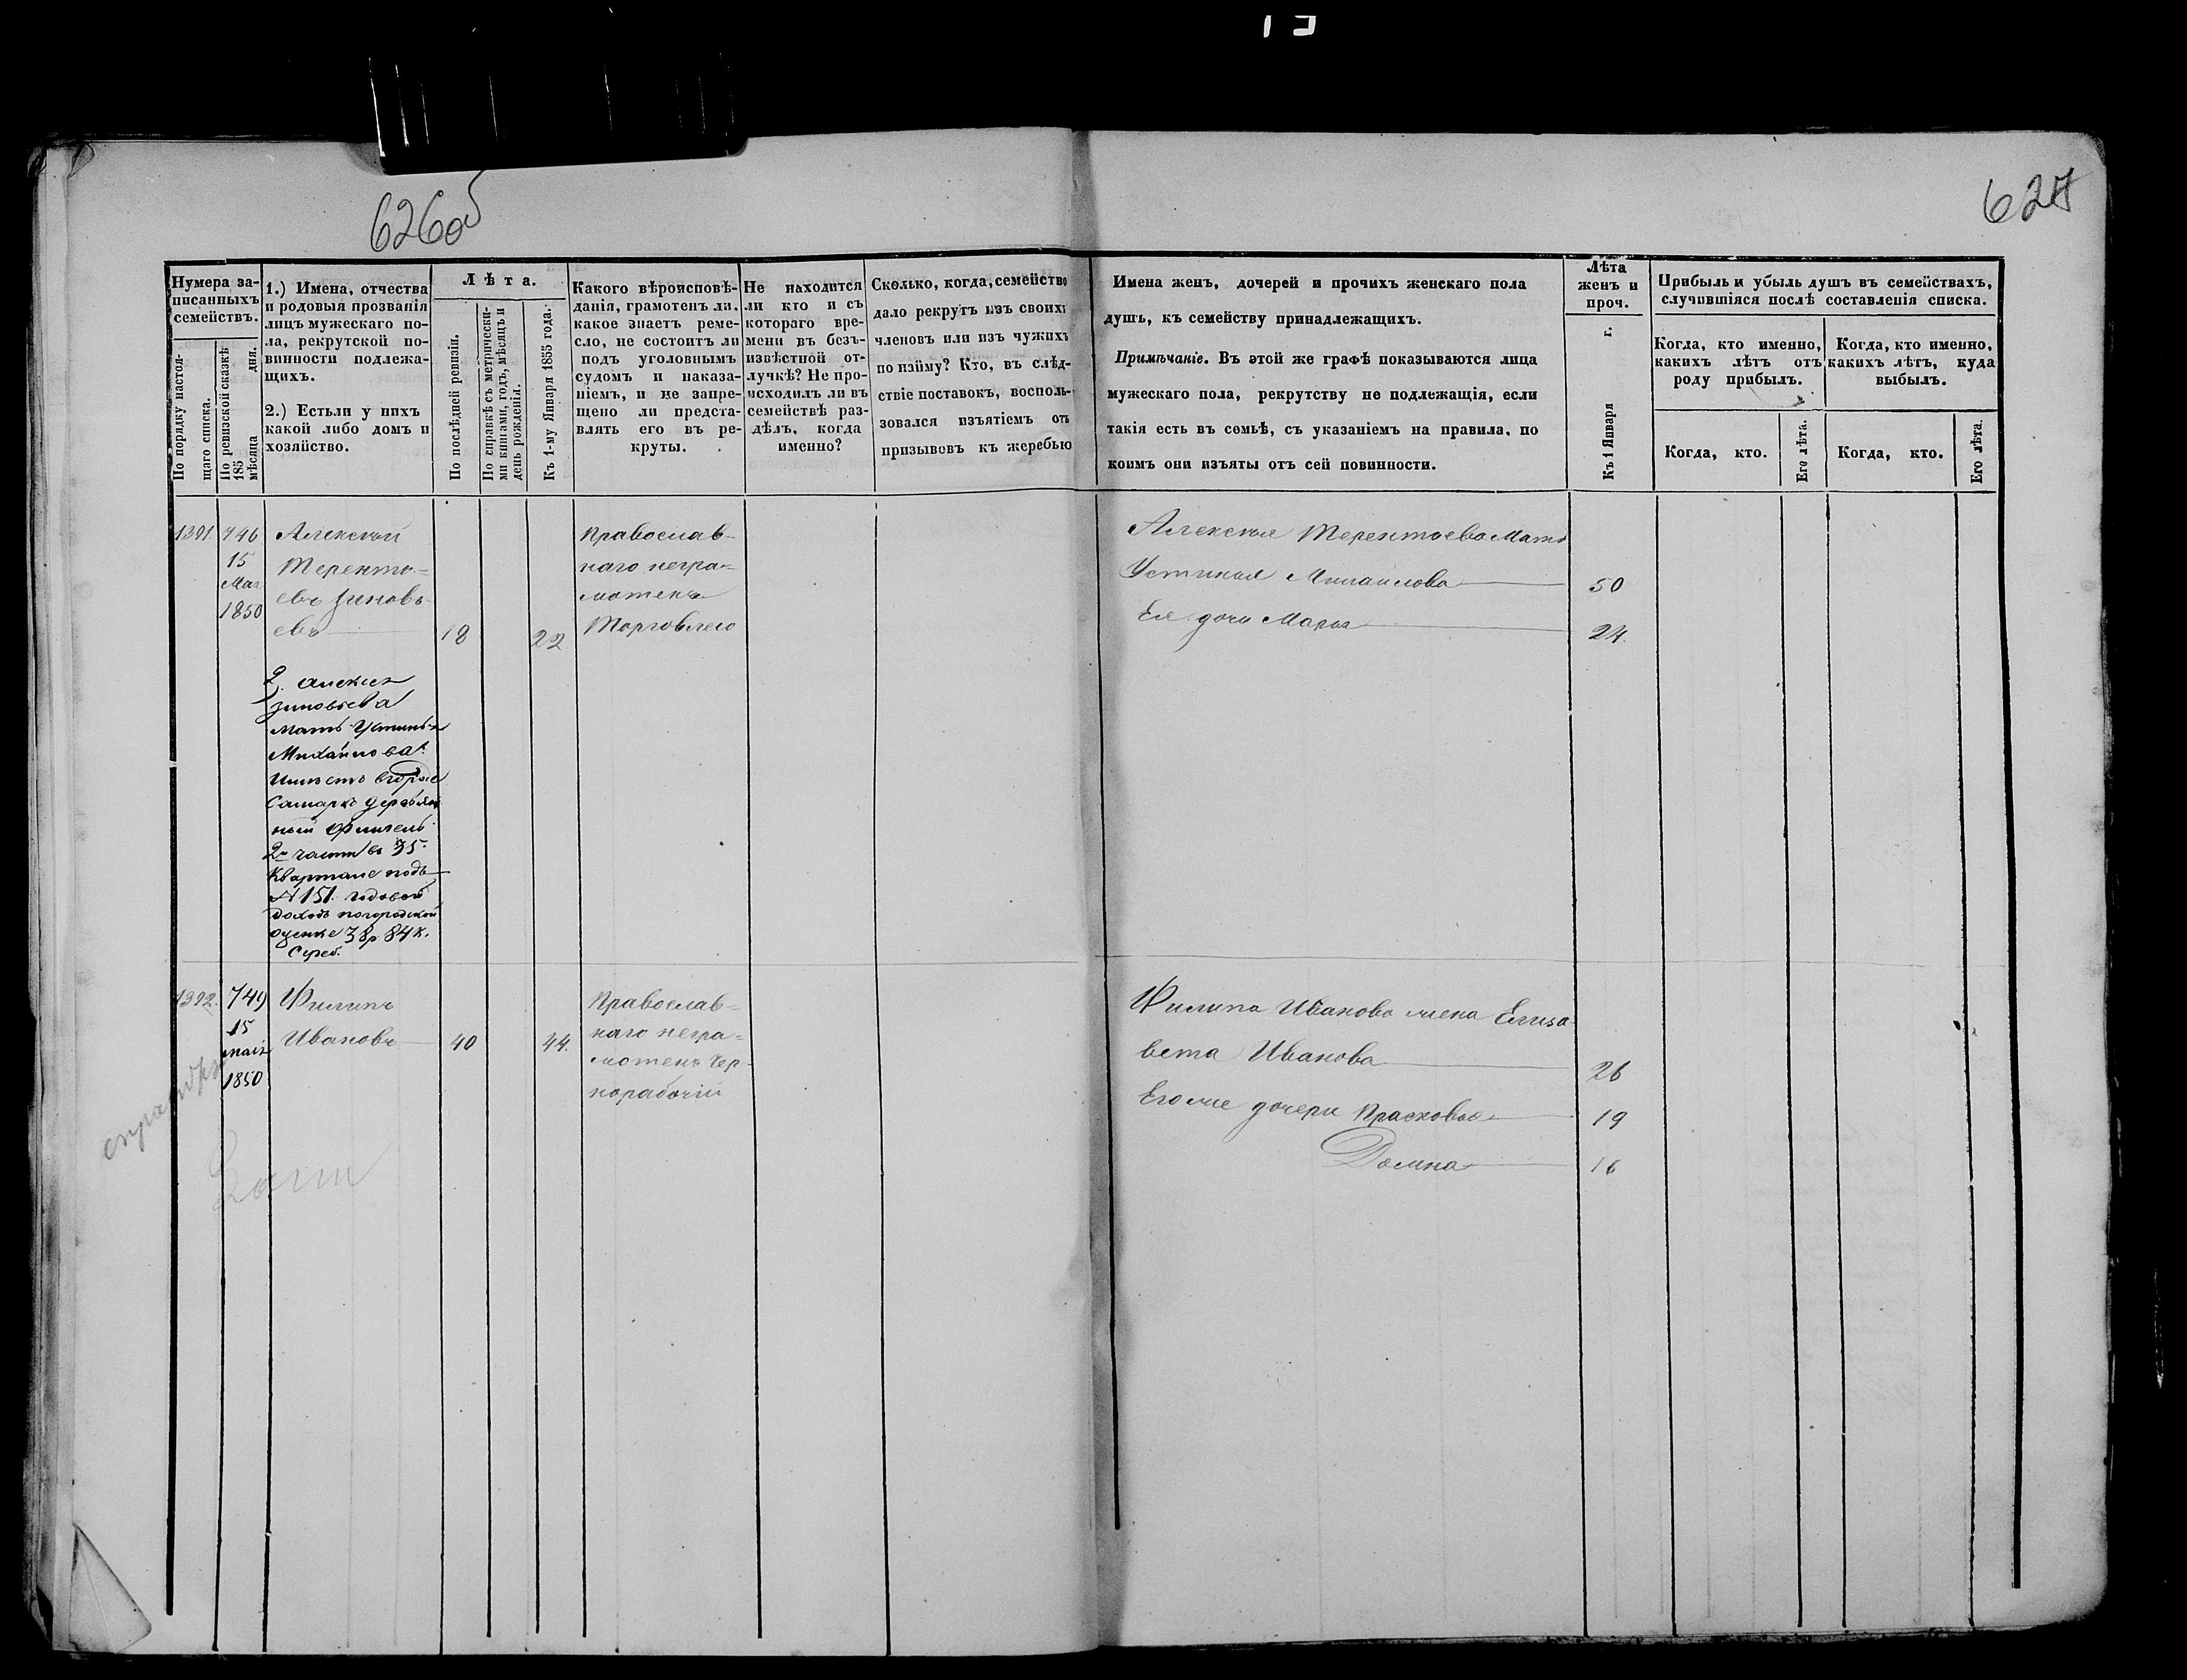 626об
627
Нумера за-
писанныхъ
семействъ.
По порядку настоя-
щаго списка.
По ревизской сказкѣ
185 дня.
мѣсяца
1.) Имена, отчества
и родовыя прозванія
лицъ мужескаго по-
ла, рекрутской по-
винности подлежа-
щихъ.
2.) Естьли у нихъ
какой либо домъ и
хозяйство.
Лѣта.
По послѣдней ревизіи.
По справкѣ съ метрически-
ми книгами, годъ, мѣсяцъ и
день рожденія.
Къ 1-му Января 1855 года.
Какого вѣроисповѣ-
данія, грамотенъ ли.
какое знаетъ реме-
сло, не состоитъ ли
подъ уголовнымъ
судомъ и наказа-
ніемъ, и не запре-
щено ли предста-
влять его въ ре-
круты.
Не находится
ли кто и съ
котораго вре-
мени въ безъ-
извѣстной от-
лучкѣ? Не про-
исходилъ ли въ
семействѣ раз-
дѣлъ, когда
именно?
Сколько, когда, семейство
дало рекрутъ изъ своихъ
членовъ или изъ чужихъ
по найму? Кто, въ слѣд-
ствіе поставокъ, восполь-
зовался изъятіемъ отъ
призывовъ къ жеребью
Имена женъ, дочерей и прочихъ женскаго пола
душъ, къ семейству принадлежащихъ.
Примѣчаніе. Въ этой же графѣ показываются лица
мужескаго пола, рекрутству не подлежащія, если
такія есть въ семьѣ, съ указаніемъ на правила, по
коимъ они изъяты отъ сей повинности.
Лѣта
женъ и
проч.
Къ 1 Января г.
Прибыль и убыль душъ въ семействахъ,
случившіяся послѣ составленія списка.
Когда, кто именно,
какихъ лѣтъ отъ
роду прибылъ.
Когда, кто именно,
какихъ лѣтъ, куда
выбылъ.
Когда, кто.
Его лѣта.
Когда, кто.
Его лѣта.
1391. 746
15
Мая
1850
Алексѣй
Теренть-
евъ Зиновь-
евъ 18 22
Православ-
наго негра-
мотенъ
Торговлею
Алексѣя Терентьева Мать
Устинья Михайлова 50
Ея дочь Марья 24.
Алексея
Зиновьева
мать Устинья
Михайлова
Имѣетъ въ городе
Самарѣ деревян
ный флигель
2й части въ 35
Квартале подъ
№ 151. годовой
доходъ по городской
оценке 38 р 84 к.
Сереб.
1392. 749
15
маія
1850
Филипъ
Ивановъ 40 44.
Православ-
наго негра-
мотенъ Чер-
норабочій
Филипа Иванова жена Елиза-
вета Иванова 26
Его же дочери Прасковья 19
Домна 16